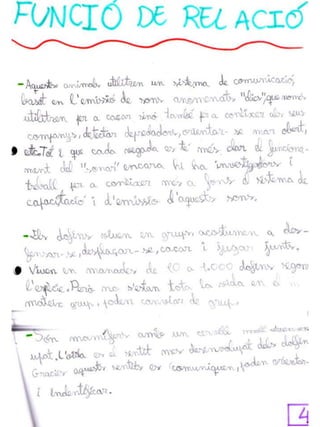 FUNCIÓ DE RELACIÓ
- Aquests animals utilitzen un sistema de comunicació,
basat en l'emissió de sons anomenats "clics", que només
utilitzen per a caçar sinó també per a conèixer als seus
companys, detectar depredadors, orientar-se mar obert,
etc. Tot i que cada vegada es té més clar el funciona-
ment del "sonar" encara hi ha investigadors i
treball per a conèixer més a fons el sistema de
capacitació i d'emissió d'aquests sons.
- Els dofins viuen en grups, acostumen a des-
plaçar-se, caçar i jugar junts.
Viuen en manades de 10 a 1.000 dofins segons
l'espècie. Però no s'estan tota la vida en el ...
mateix grup, poden canviar de grup.
- Són mamífers amb un cervell molt
upat. L'oïda es el sentit mes desenvolupat dels dofins
Gracies aquests sentits es comuniquen, poden orientar
i indentificar.
4